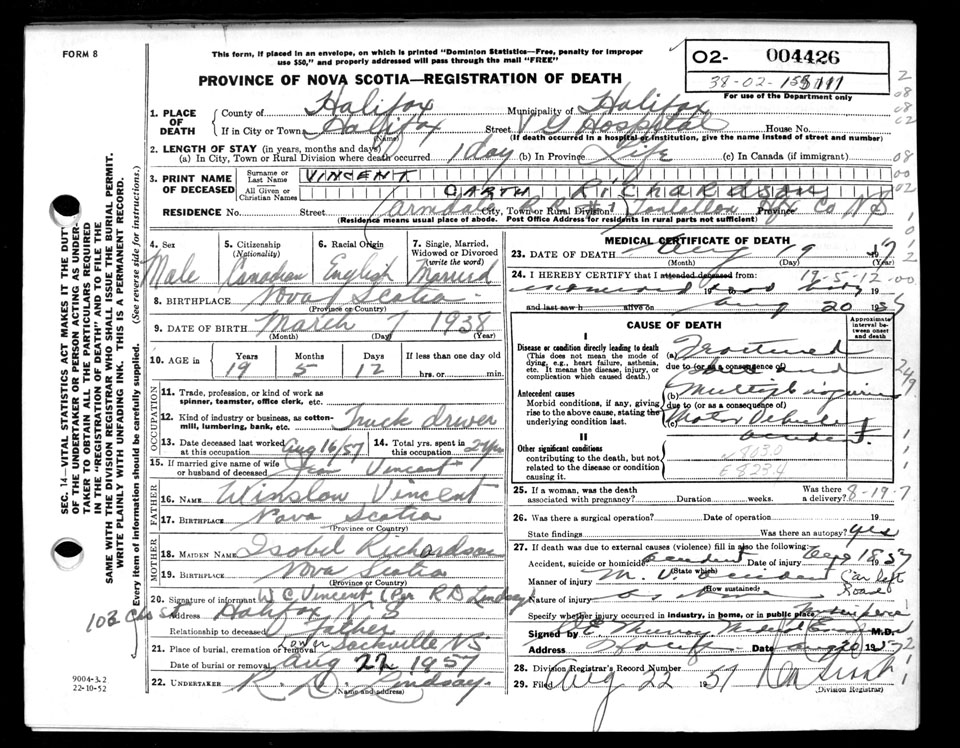 FORM 8
This form, if placed in an envelope, on which is printed "Dominion Statistics—Free, penalty for improper
use $50," and properly addressed will pass through the mail "FREE"
PROVINCE OF NOVA SCOTIA—REGISTRATION OF DEATH
O2- 004426
38-02-
For use of the Department only
1. PLACE OF DEATH
County of Halifax Municipality of Halifax
If in City or Town Halifax Street V G Hospital House No.
(Name) (If death occurred in a hospital or institution, give the name instead of street and number)
2. LENGTH OF STAY (in years, months and days)
(a) In City, Town or Rural Division where death occurred 1 day (b) In Province Life (c) In Canada (if immigrant)
3. PRINT NAME OF DECEASED
Surname or Last Name VINCENT
All Given or Christian Names GARTH RICHARDSON
RESIDENCE No. Street Armdale City, Town or Rural Division R R #1 Province Hfx Co N S
(Residence means usual place of abode. Post Office Address for residents in rural parts not sufficient)
4. Sex Male
5. Citizenship (Nationality) Canadian
6. Racial Origin English
7. Single, Married, Widowed or Divorced (write the word) Married
8. BIRTHPLACE Nova Scotia
(Province or Country)
9. DATE OF BIRTH March 7 1938
(Month) (Day) (Year)
10. AGE in Years 19 Months 5 Days 12 If less than one day old hrs. or min.
OCCUPATION
11. Trade, profession, or kind of work as
spinner, teamster, office clerk, etc.
12. Kind of industry or business, as cotton-
mill, lumbering, bank, etc. Truck driver
13. Date deceased last worked at this occupation Aug 16/57 14. Total yrs. spent in this occupation 2 yrs
15. If married give name of wife
or husband of deceased Vincent
FATHER
16. NAME Winslow Vincent
17. BIRTHPLACE Nova Scotia
(Province or Country)
MOTHER
18. MAIDEN NAME Isobel Richardson
19. BIRTHPLACE Nova Scotia
(Province or Country)
20. Signature of informant W C Vincent (Per R D Lindsay)
Address Halifax N S
Relationship to deceased Father
21. Place of burial, cremation or removal Lower Sackville NS
Date of burial or removal Aug 22 1957
22. UNDERTAKER R D Lindsay
(Name and address)
9004-3.2
22-10-52
SEC. 14—VITAL STATISTICS ACT MAKES IT THE DUTY
OF THE UNDERTAKER OR PERSON ACTING AS UNDER-
TAKER TO OBTAIN ALL THE PARTICULARS REQUIRED
IN THE "REGISTRATION OF DEATH" AND TO FILE THE
SAME WITH THE DIVISION REGISTRAR WHO SHALL ISSUE THE BURIAL PERMIT.
WRITE PLAINLY WITH UNFADING INK. THIS IS A PERMANENT RECORD.
Every item of information should be carefully supplied. (See reverse side for instructions.)
MEDICAL CERTIFICATE OF DEATH
23. DATE OF DEATH Aug 19
(Month) (Day) (Year)
24. I HEREBY CERTIFY that I attended deceased from: 19-5-12
and last saw h alive on Aug 20 1957
CAUSE OF DEATH
Approximate interval between onset and death
I
Disease or condition directly leading to death
(This does not mean the mode of
dying, e.g., heart failure, asthenia,
etc. It means the disease, injury, or
complication which caused death.)
(a) Fractured
due to (or as a consequence of)
Antecedent causes
Morbid conditions, if any, giving
rise to the above cause, stating the
underlying condition last.
(b) Multiple injuries
due to (or as a consequence of)
(c) Motor Vehicle
accident.
II
Other significant conditions
contributing to the death, but not
related to the disease or condition
causing it.
E 823.4
25. If a woman, was the death
associated with pregnancy? Duration weeks. Was there a delivery? 8-19-7
26. Was there a surgical operation? Date of operation 19
State findings Was there an autopsy? yes
27. If death was due to external causes (violence) fill in also the following:
Accident, suicide or homicide? accident Date of injury Aug 18 57
(State which)
Manner of injury M. V. accident Car left road
(How sustained)
Nature of injury as above
Specify whether injury occurred in industry, in home, or in public place
Signed by Murray M.D.
Address Date 1957
28. Division Registrar's Record Number
29. Filed Aug 22 1957
(Division Registrar)